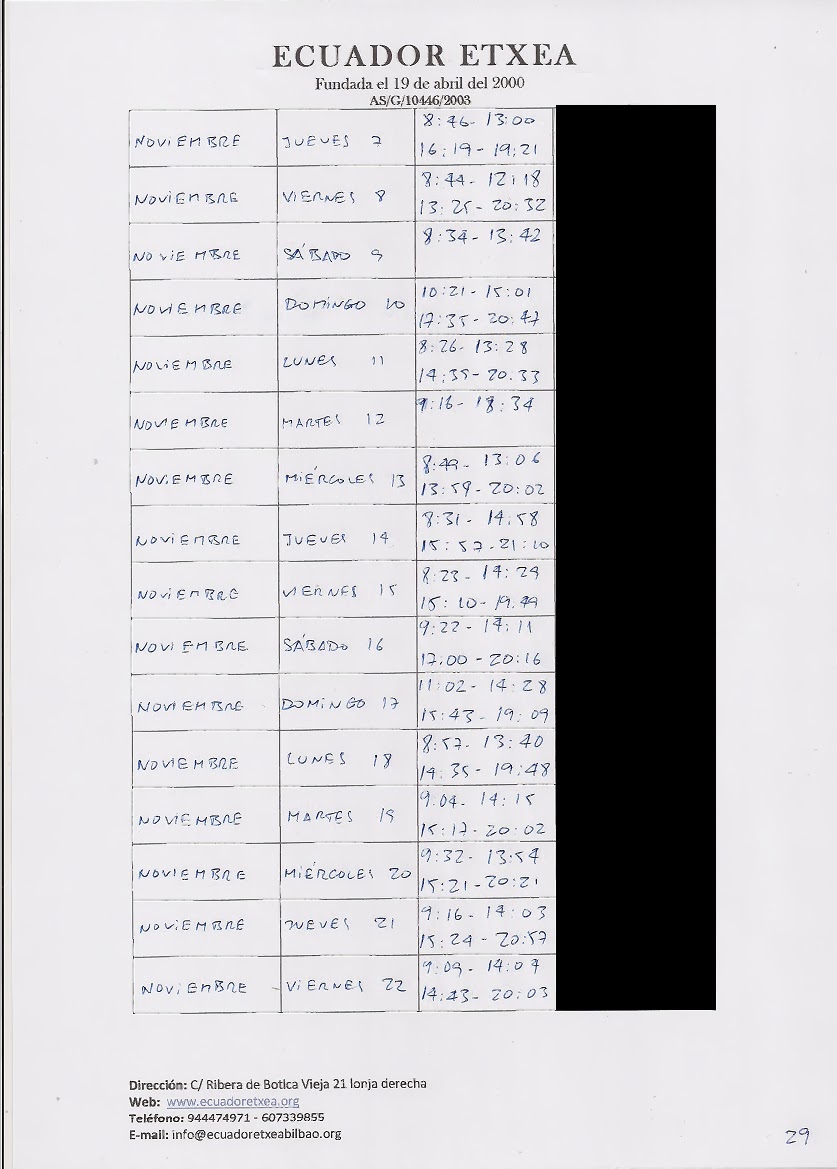 ECUADOR ETXEA
Fundada el 19 de abril del 2000
AS/G/10446/2003
NOVIEMBRE JUEVES 7 8:46- 13:00
16:19- 19:21
NOVIEMBRE VIERNES 8 8:44- 12:18
13:25- 20:32
NOVIEMBRE SÁBADO 9 8:34- 13:42
NOVIEMBRE DOMINGO 10 10:21- 15:01
17:35- 20:47
NOVIEMBRE LUNES 11 8:26- 13:28
14:35- 20.33
NOVIEMBRE MARTES 12 9:16- 18:34
NOVIEMBRE MIÉRCOLES 13 8:49- 13:06
13:59- 20:02
NOVIEMBRE JUEVES 14 8:31- 14:58
15:57-21:10
NOVIEMBRE VIERNES 15 8:23- 14:29
15:10- 19.49
NOVIEMBRE SÁBADO 16 9:22- 14:11
17:00 - 20:16
NOVIEMBRE DOMINGO 17 11:02- 14:28
15:43- 19:09
NOVIEMBRE LUNES 18 8:57- 13:40
14:35- 19:48
NOVIEMBRE MARTES 19 9:04- 14:15
15:17- 20:02
NOVIEMBRE MIÉRCOLES 20 9:32- 13:54
15:21-20:21
NOVIEMBRE JUEVES 21 9:16- 14:03
15:24 - 20:57
NOVIEMBRE VIERNES 22 9:09- 14:07
14:43- 20:03
Dirección: C/ Ribera de Botica Vieja 21 lonja derecha
Web: www.ecuadoretxea.org
Teléfono: 944474971 - 607339855
E-mail: info@ecuadoretxeabilbao.org
29